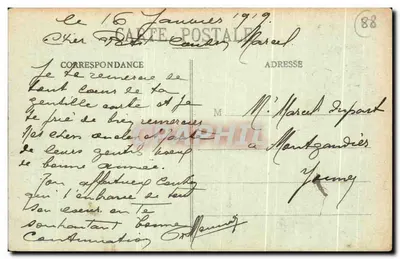 le 16 Janvier 1919.
88
CARTE POSTALE
Cher Petit Cousin Marcel
CORRESPONDANCE
ADRESSE
Je te remercie de
tout cœur de ta
gentille carte et je
te prie de bien remercier
de leurs gentils vœux
de bonne année.
Ton affectueux Cousin
qui t'embrasse de tout
son cœur en te
souhaitant bonne
Continuation
M
Mr Marcel Dupont
à Montgaudier